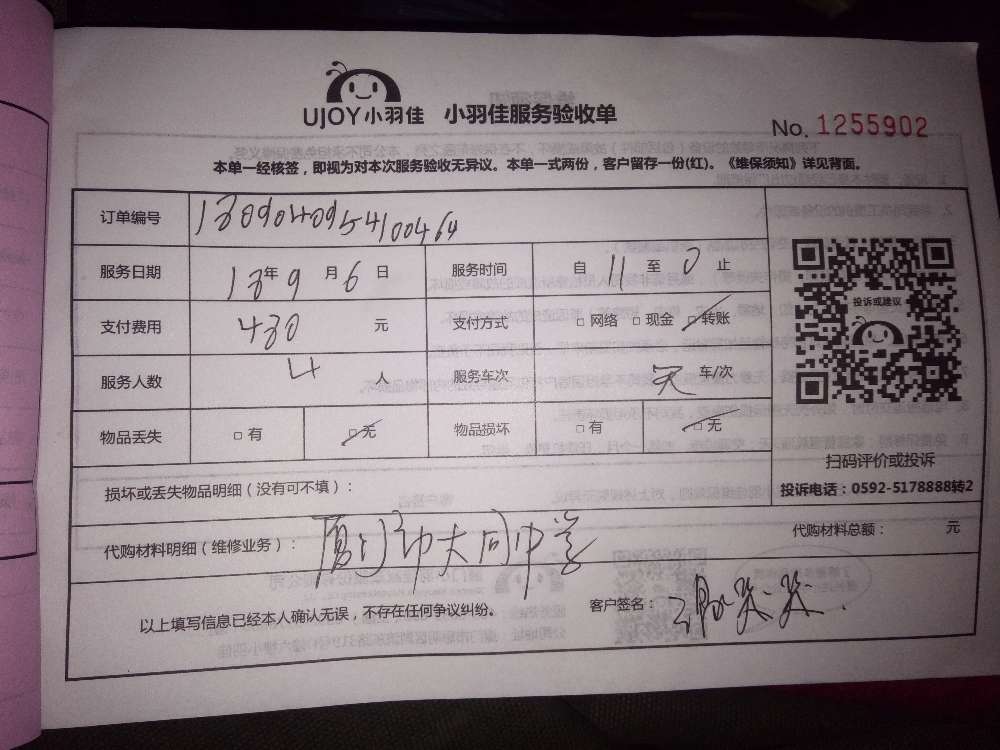 UJOY小羽佳 小羽佳服务验收单
No. 1255902
本单一经核签，即视为对本次服务验收无异议。本单一式两份，客户留存一份(红)。《维保须知》详见背面。
订单编号
服务日期 年 9 月 6 日 服务时间 自 11 至 止
支付费用 430 元 支付方式 □ 网络 □ 现金 □ 转账
投诉或建议
服务人数 4 人 服务车次 车/次
物品丢失 □ 有 □ 无 物品损坏 □ 有 □ 无
扫码评价或投诉
损坏或丢失物品明细（没有可不填）：
投诉电话：0592-5178888转2
代购材料明细（维修业务）： 厦门市大同中学
代购材料总额： 元
以上填写信息已经本人确认无误，不存在任何争议纠纷。
客户签名：